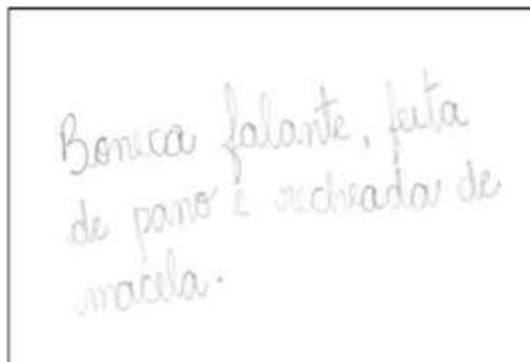 Boneca falante, feita
de pano é recheada de
macela.